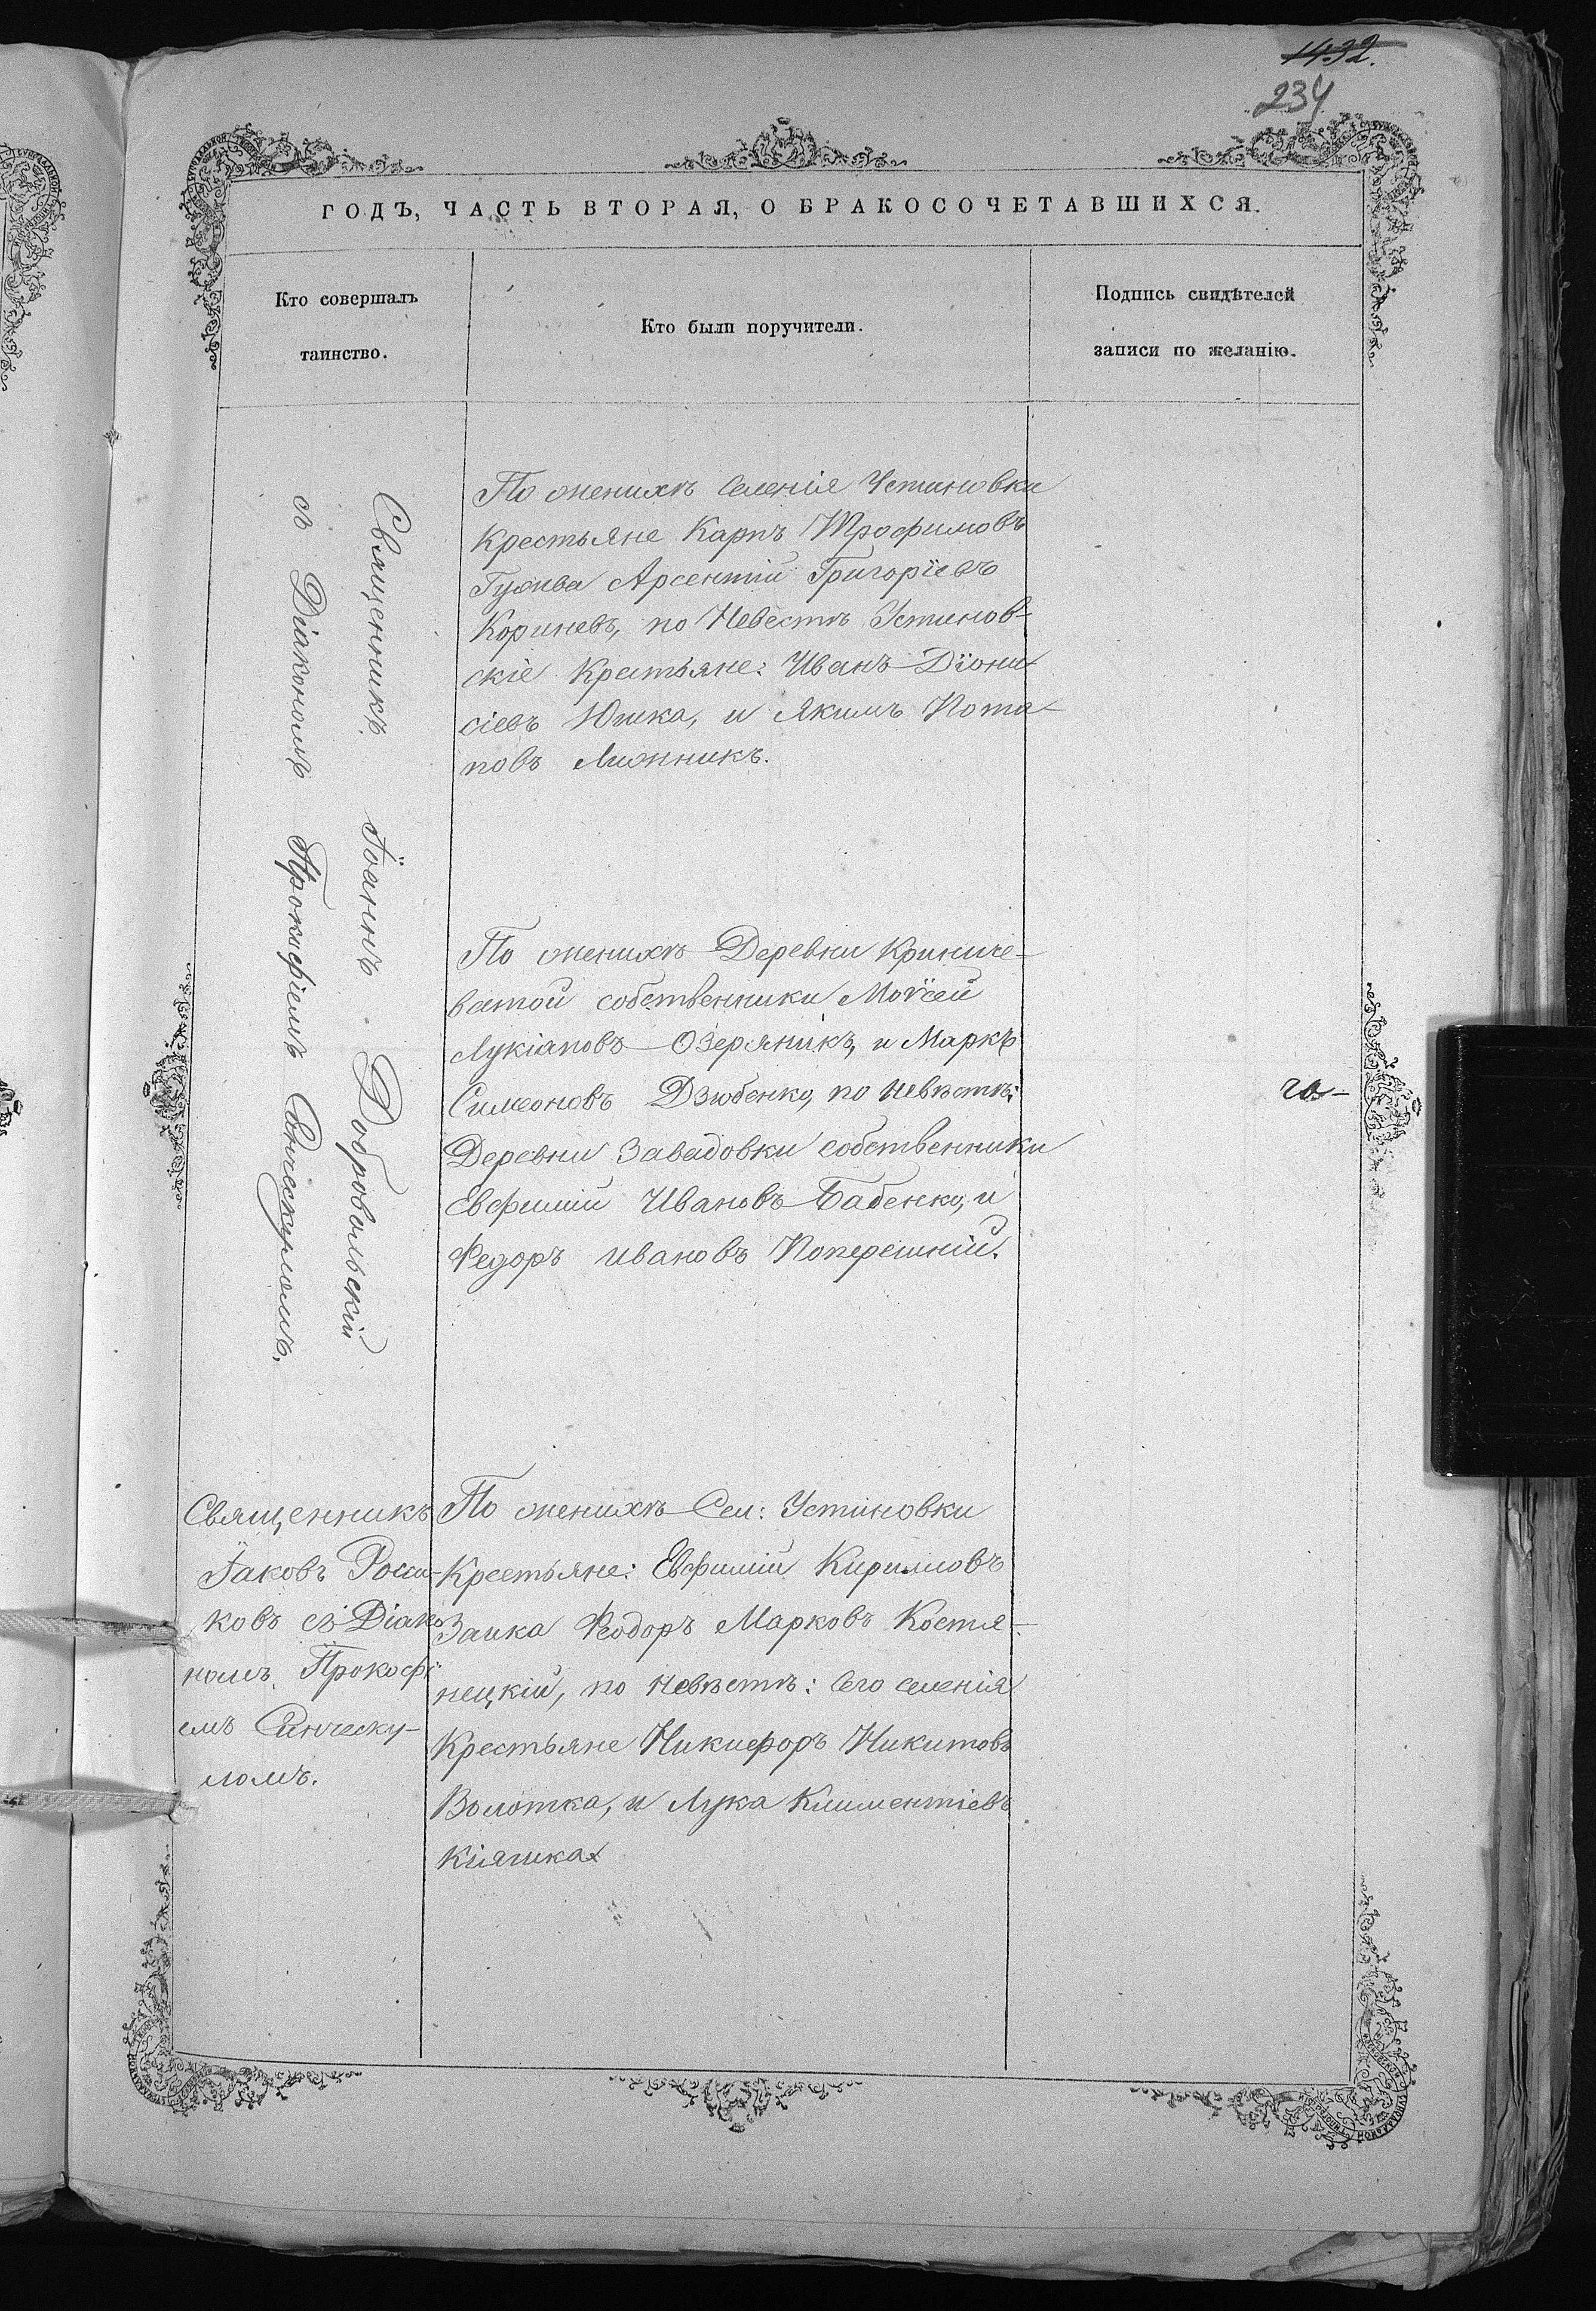 1432.
234
ГОДЪ, ЧАСТЬ ВТОРАЯ, О БРАКОСОЧЕТАВШИХСЯ.
Кто совершалъ
таинство.
Кто были поручители.
Подпись свидѣтелей
записи по желанію.
Священникъ Іоаннъ Добровольскій
съ Діакономъ Прокофіемъ
По женихѣ селенія Устиновки
Крестьяне Карпъ Трофимовъ
Гужва Арсентій Григорїевъ
Кориневъ, по Невестѣ Устинов-
скіе Крестьяне: Иванъ Дїони
сіевъ Юшка, и Якимъ Пота-
повъ Лижникъ.
По женихѣ Деревни Криниче-
ватой собственники Моѵсей
Лукіановъ Озеряникъ, и Маркъ
Симеоновъ Дзюбенко, по невѣстѣ:
Деревни Завадовки собственники
Евфимій Ивановъ Бабенко, и
Федоръ Ивановъ Поперешній.
Священникъ
Іаковъ Росси-
ковъ съ Діако
номъ Прокофі
емъ Синческу-
ломъ.
По женихѣ Сел: Устиновки
Крестьяне: Евфимій Кириловъ
Заика Феодоръ Марковъ Костя-
нецкій, по невѣстѣ: Сего селенія
Крестьяне Никифоръ Никитовъ
Волотка, и Лука Климентіевъ
Кіяшка